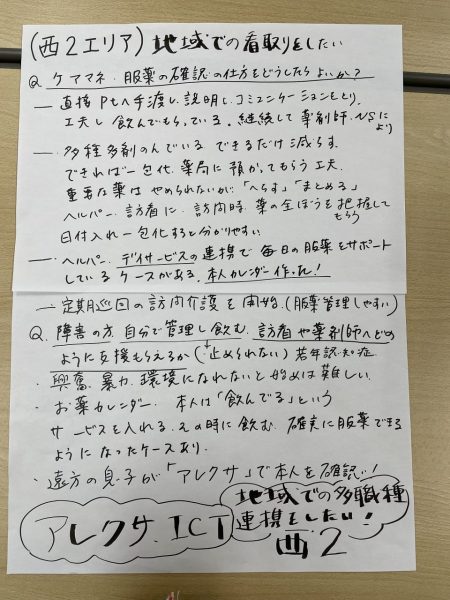 (西2エリア) 地域での看取りをしたい
Q ケアマネ、服薬の確認の仕方をどうしたらよいか?
— 直接Ptへ手渡し、説明し、コミュニケーションをとり、
工夫し飲んでもらっている。継続して薬剤師、NSにより
— 多種多剤のんでいる できるだけ減らす。
できれば一包化、薬局に預かってもらう工夫。
重要な薬はやめられないが「へらす」「まとめる」
ヘルパー、訪看者に、訪問時、薬の全ぼうを把握してもらう
日付入れ一包化すると分かりやすい
— ヘルパー、デイサービスの連携で毎日の服薬をサポート
しているケースがある。本人カレンダー作れ!
— 定期巡回の訪問介護を開始。(服薬管理しやすい)
Q. 障害の方、自分で管理し飲む、訪看者や薬剤師へどの
ように支援もらえるか(止められない)若年認知症
・興奮、暴力、環境になれないと始めは難しい。
・お薬カレンダー 本人は「飲んでる」という
サービスを入れる。その時に飲む、確実に服薬できる
ようになったケースあり。
・遠方の息子が「アレクサ」で本人を確認!!
アレクサ、ICT
地域での多職種
連携をしたい!
西2